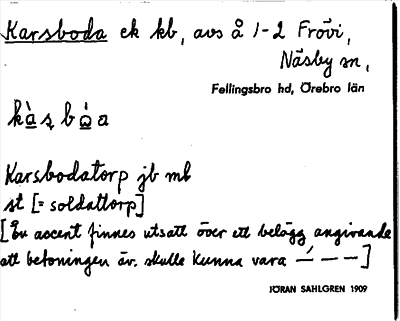 Karsboda ek kb, avs å 1-2 Frövi,
Näsby sn,
Fellingsbro hd, Örebro län
Karsbodatorp jb mb
st [= soldattorp]
[En accent finnes utsatt över ett belägg angivande
att betoningen äv. skulle kunna vara –́ – –]
JÖRAN SAHLGREN 1909